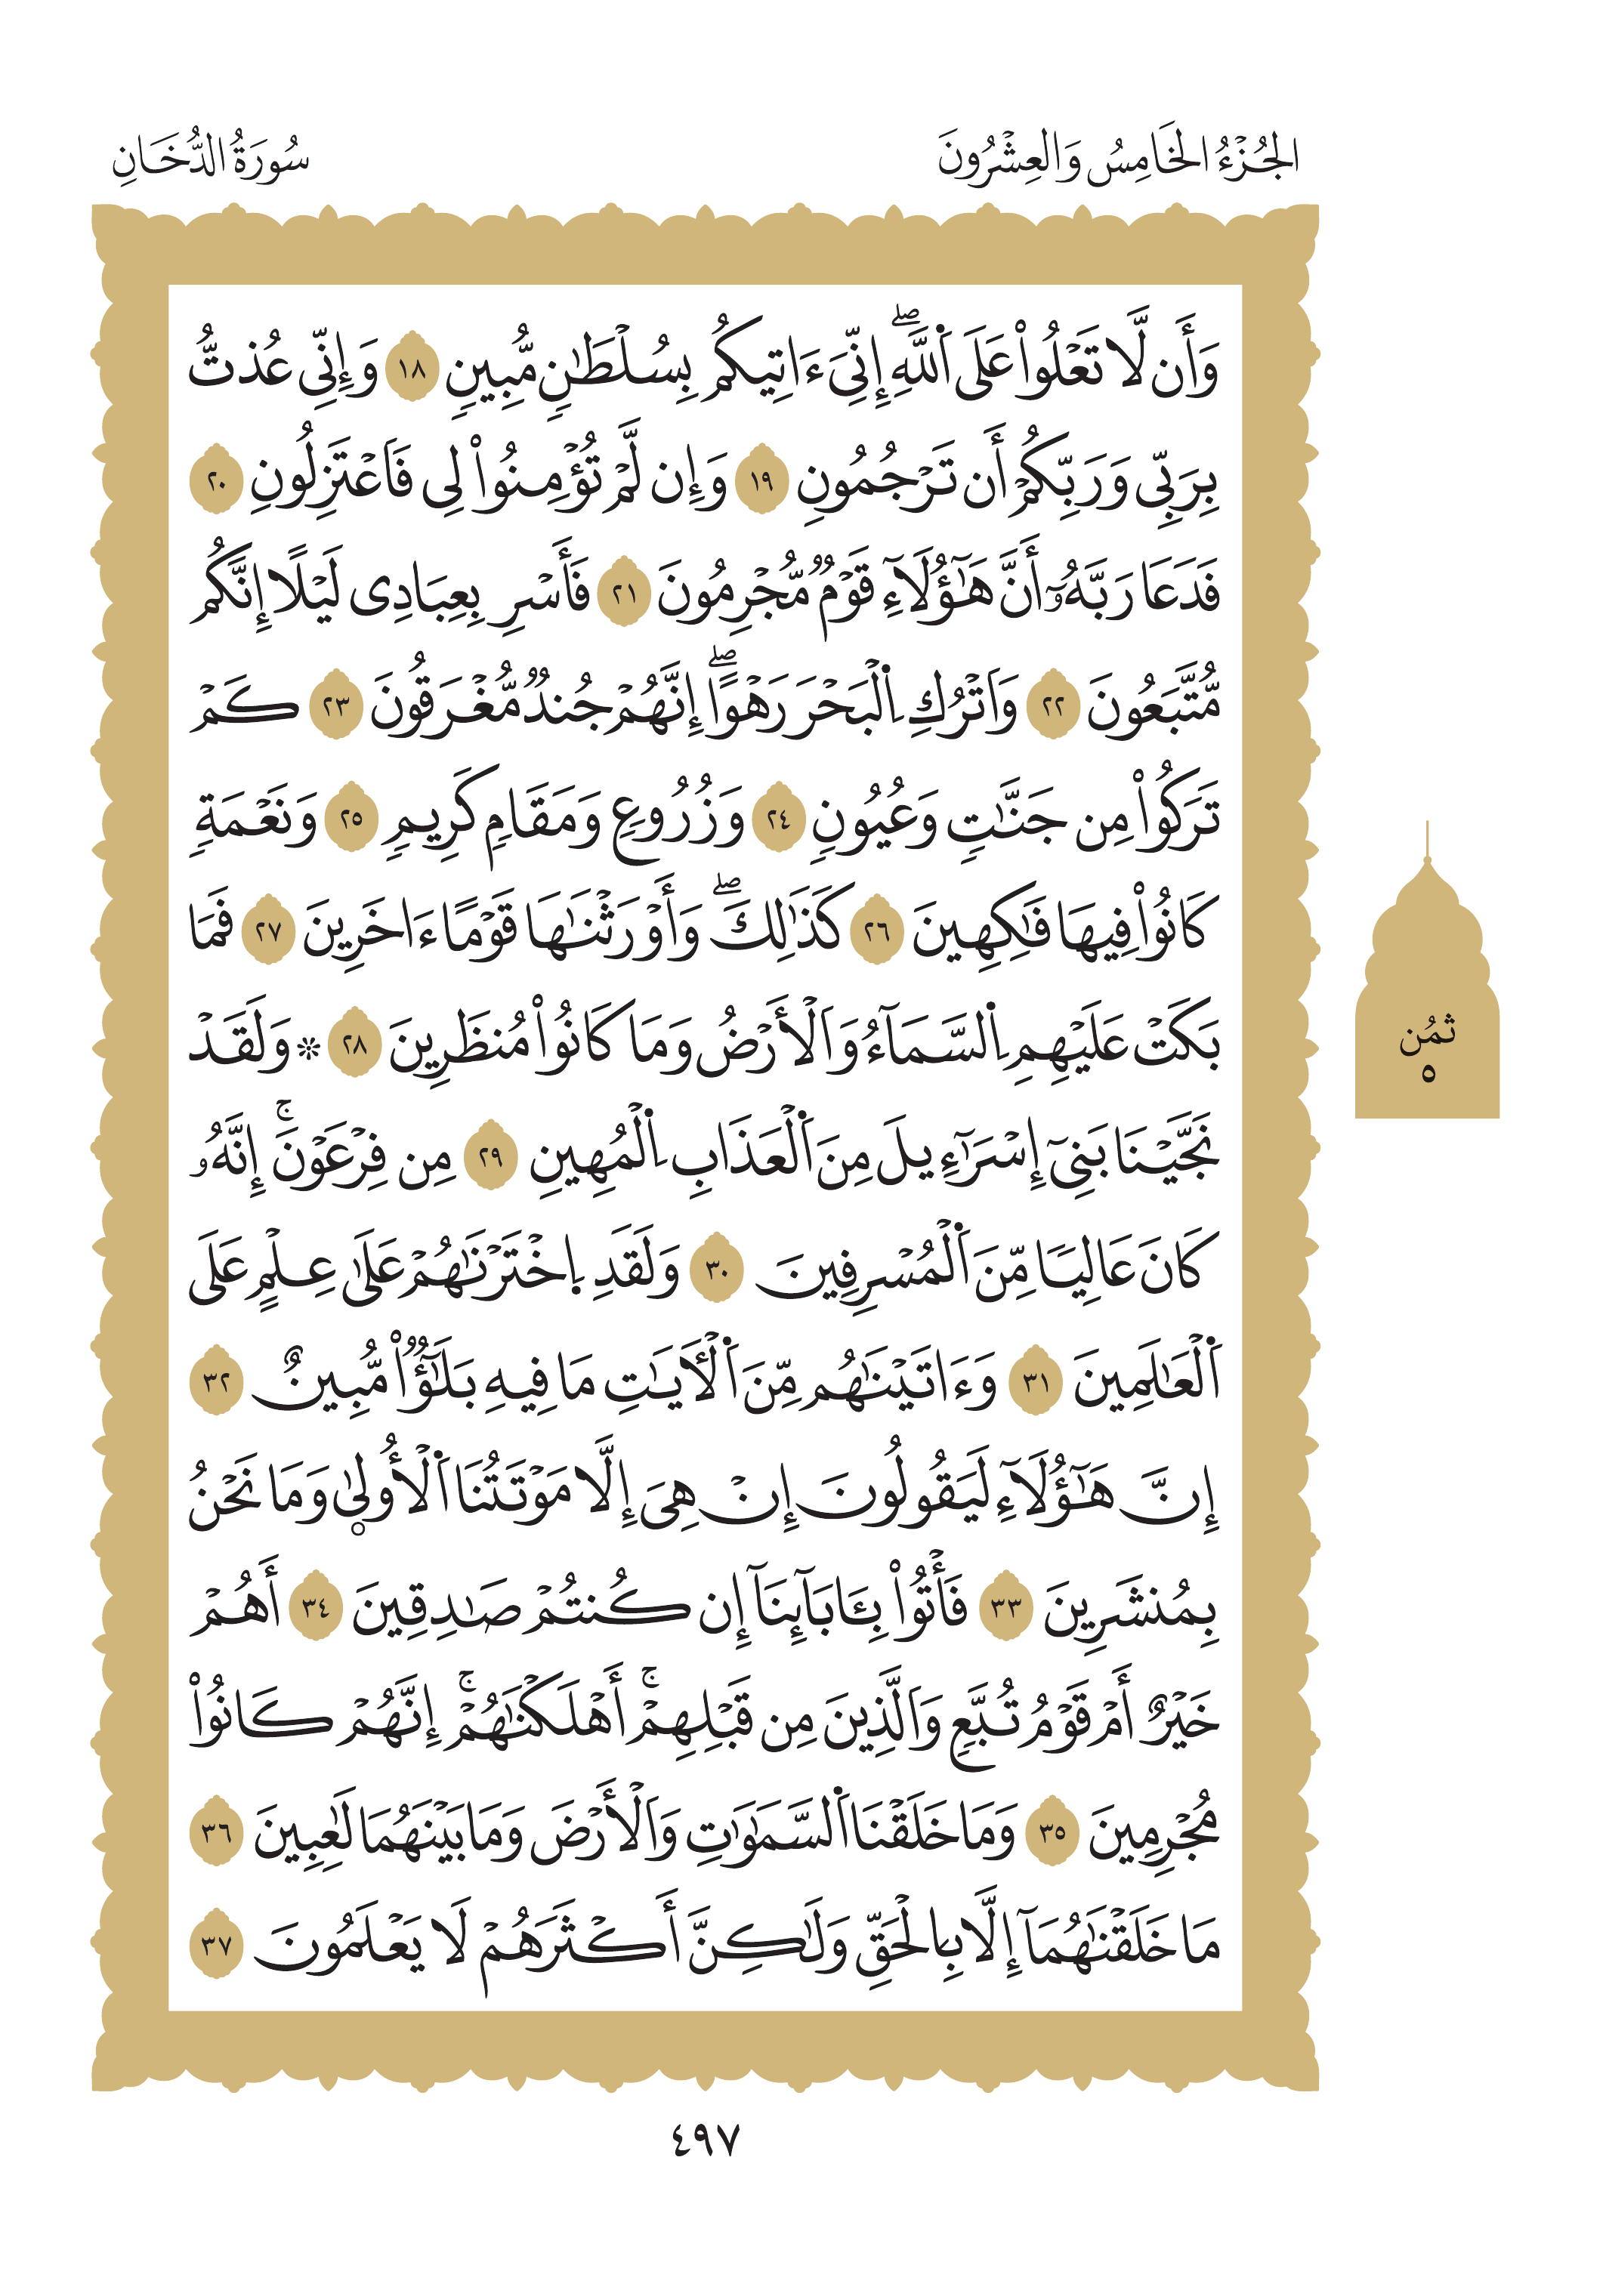 الجُزْءُ الخَامِسُ وَالعِشْرُونَ
سُورَةُ الدُّخَانِ
وَأَن لَّا تَعْلُواْ عَلَى اَ۬للَّهِۖ إِنِّيَ ءَاتِيكُم بِسُلْطَٰنٖ مُّبِينٖ ١٨ وَإِنِّي عُذتُّ
بِرَبِّي وَرَبِّكُمْ أَن تَرْجُمُونِ ١٩ وَإِن لَّمْ تُؤْمِنُواْ لِي فَاعْتَزِلُونِ ٢٠
فَدَعَا رَبَّهُۥٓ أَنَّ هَٰٓؤُلَآءِ قَوْمٞ مُّجْرِمُونَ ٢١ فَأَسْرِ بِعِبَادِي لَيْلًا إِنَّكُم
مُّتَّبَعُونَ ٢٢ وَاتْرُكِ اِ۬لْبَحْرَ رَهْوًاۖ إِنَّهُمْ جُندٞ مُّغْرَقُونَ ٢٣ كَمْ
تَرَكُواْ مِن جَنَّٰتٖ وَعُيُونٖ ٢٤ وَزُرُوعٖ وَمَقَامٖ كَرِيمٖ ٢٥ وَنَعْمَةٖ
كَانُواْ فِيهَا فَٰكِهِينَ ٢٦ كَذَٰلِكَۖ وَأَوْرَثْنَٰهَا قَوْمًا ءَاخَرِينَ ٢٧ فَمَا
بَكَتْ عَلَيْهِمِ اِ۬لسَّمَآءُ وَالْأَرْضُ وَمَا كَانُواْ مُنظَرِينَ ٢٨ ۞ وَلَقَدْ
نَجَّيْنَا بَنِيٓ إِسْرَٰٓءِيلَ مِنَ اَ۬لْعَذَابِ اِ۬لْمُهِينِ ٢٩ مِن فِرْعَوْنَۚ إِنَّهُۥ
كَانَ عَالِيًا مِّنَ اَ۬لْمُسْرِفِينَ ٣٠ وَلَقَدِ اِ۪خْتَرْنَٰهُمْ عَلَىٰ عِلْمٍ عَلَى
اَ۬لْعَٰلَمِينَ ٣١ وَءَاتَيْنَٰهُم مِّنَ اَ۬لْأٓيَٰتِ مَا فِيهِ بَلَٰٓؤٞاْ مُّبِينٌ ٣٢
إِنَّ هَٰٓؤُلَآءِ لَيَقُولُونَ إِنْ هِيَ إِلَّا مَوْتَتُنَا اَ۬لْأُولۭىٰ وَمَا نَحْنُ
بِمُنشَرِينَ ٣٣ فَأْتُواْ بِـَٔابَآئِنَآ إِن كُنتُمْ صَٰدِقِينَ ٣٤ أَهُمْ
خَيْرٌ أَمْ قَوْمُ تُبَّعٖ وَالَّذِينَ مِن قَبْلِهِمْۚ أَهْلَكْنَٰهُمْۚ إِنَّهُمْ كَانُواْ
مُجْرِمِينَ ٣٥ وَمَا خَلَقْنَا اَ۬لسَّمَٰوَٰتِ وَالْأَرْضَ وَمَا بَيْنَهُمَا لَٰعِبِينَ ٣٦
مَا خَلَقْنَٰهُمَآ إِلَّا بِالْحَقِّ وَلَٰكِنَّ أَكْثَرَهُمْ لَا يَعْلَمُونَ ٣٧
ثُمُن
٥
٤٩٧